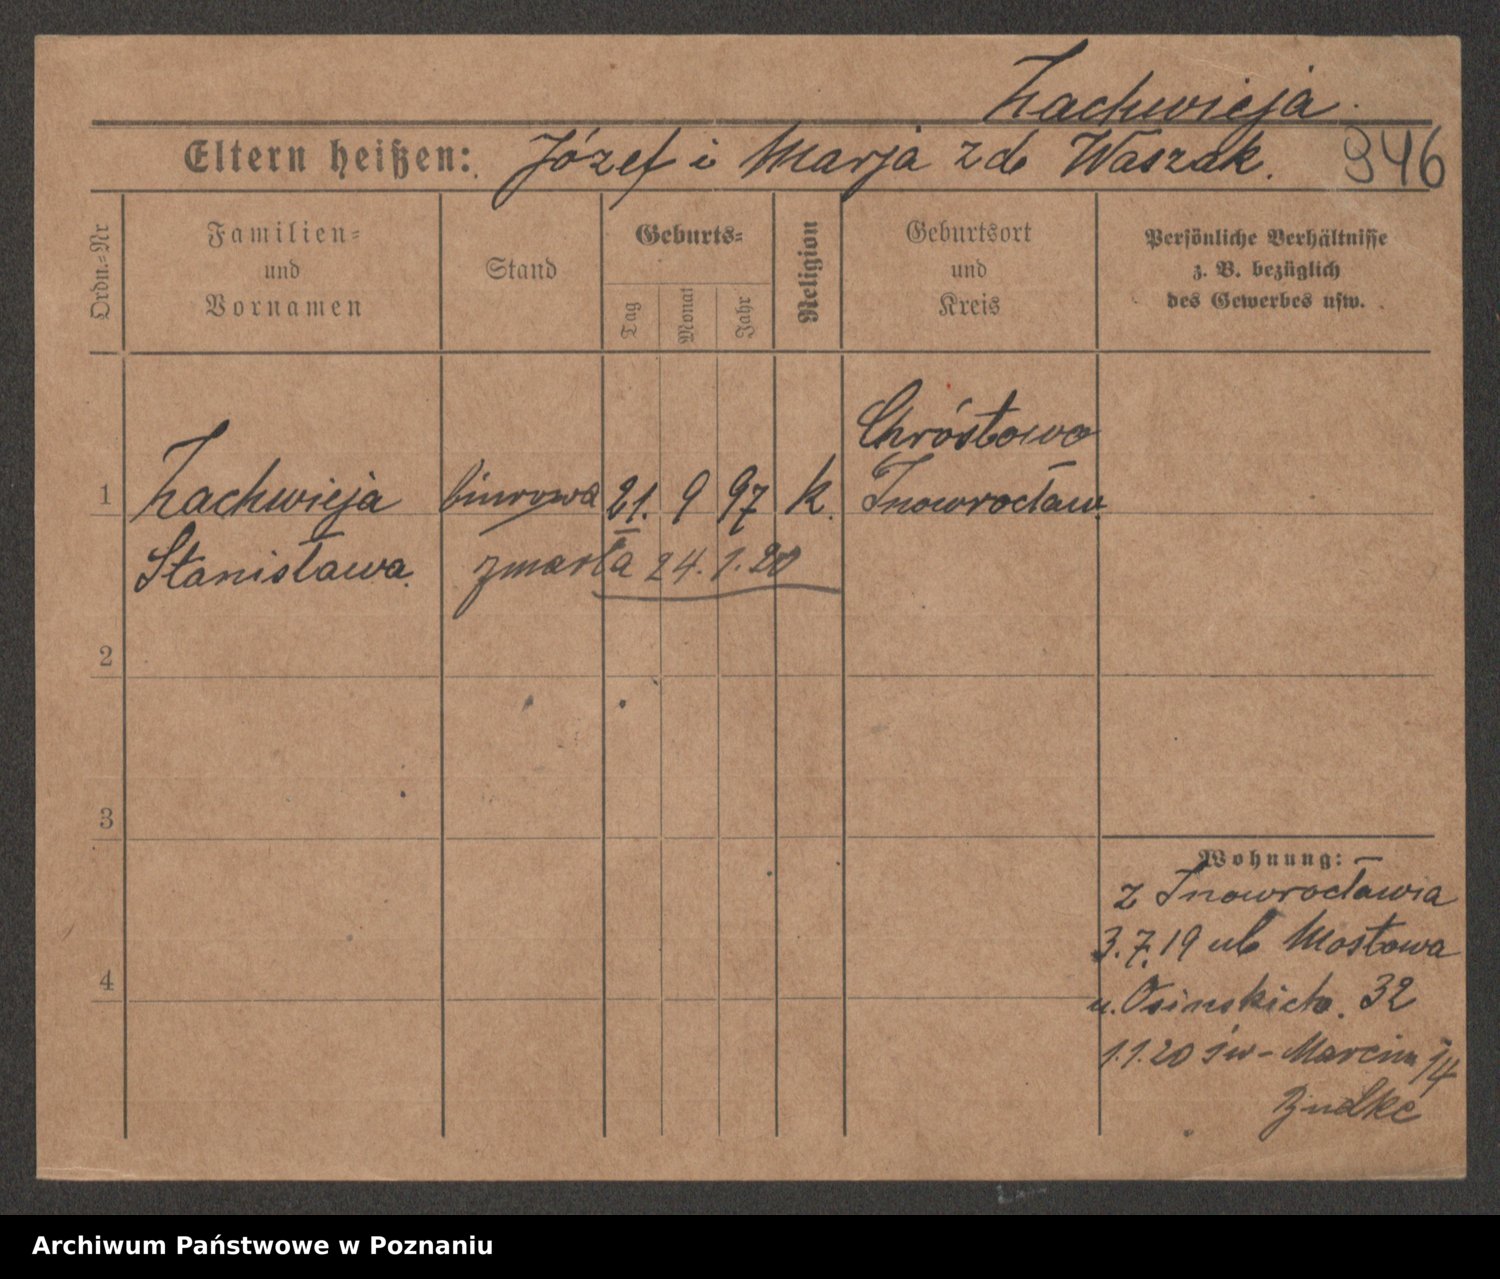 Zachwieja
Eltern heißen: Józef i Marja z d. Waszak. 346
Ordn.=Nr
Familien=
und
Vornamen
Stand
Geburts=
Tag
Monat
Jahr
Religion
Geburtsort
und
Kreis
Persönliche Verhältnisse
z. B. bezüglich
des Gewerbes usw.
Chróstowo
1 Zachwieja biurowa 21. 9 97 k. Inowrocław.
Stanisława. zmarła 24. 1. 20
2
3
4
Wohnung:
z Inowrocławia
3.7.19 ul. Mostowa
u. Osinskich. 32
1.1.20 św- Marcin 14